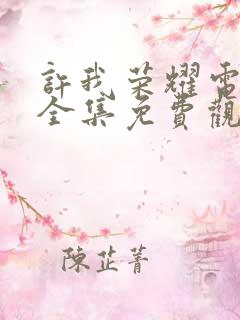 許我荣耀電
全集免費觀
陳芷菁